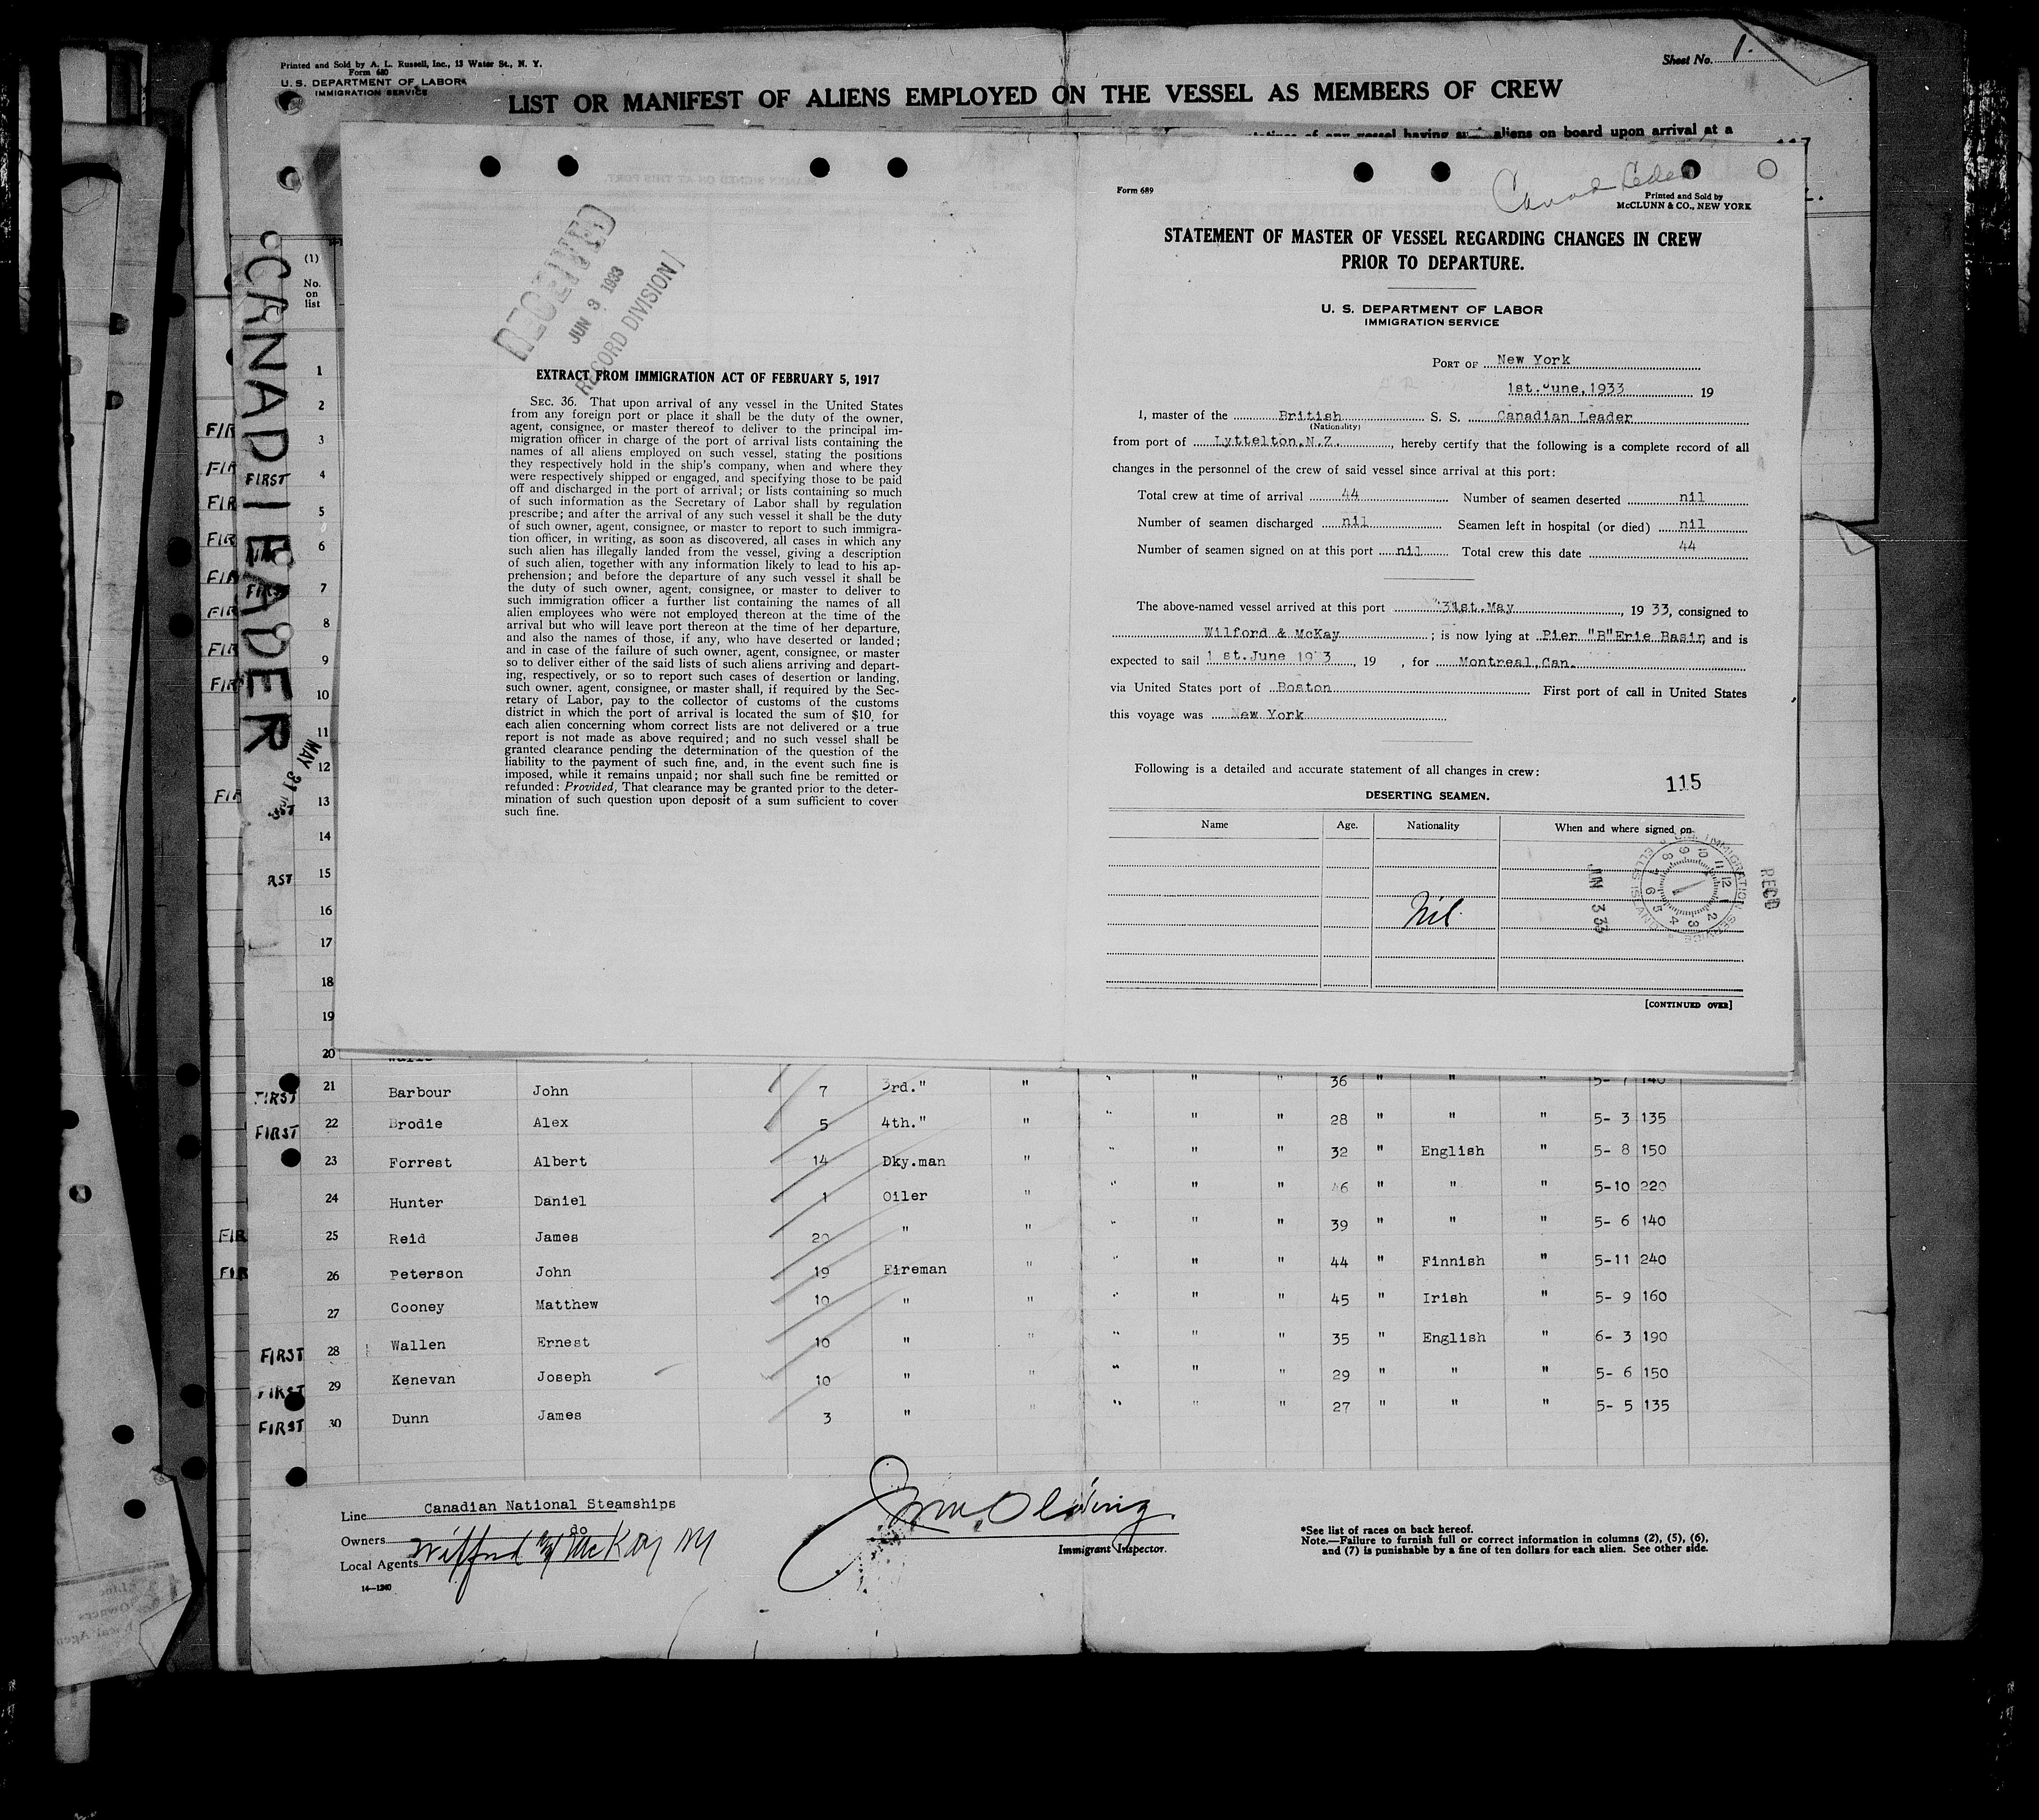 Printed and Sold by A. L. Russell, Inc., 13 Water St., N. Y.
Form 680
U. S. DEPARTMENT OF LABOR
IMMIGRATION SERVICE
Sheet No. 1.
LIST OR MANIFEST OF ALIENS EMPLOYED ON THE VESSEL AS MEMBERS OF CREW
aliens on board upon arrival at a
CANADILEADER
MAY 31
(1)
No.
on
list
1
2
3
4
5
6
7
8
9
10
11
12
13
14
15
16
17
18
19
20
RECEIVED
JUN 3 1933
RECORD DIVISION
EXTRACT FROM IMMIGRATION ACT OF FEBRUARY 5, 1917
SEC. 36. That upon arrival of any vessel in the United States
from any foreign port or place it shall be the duty of the owner,
agent, consignee, or master thereof to deliver to the principal im-
migration officer in charge of the port of arrival lists containing the
names of all aliens employed on such vessel, stating the positions
they respectively hold in the ship's company, when and where they
were respectively shipped or engaged, and specifying those to be paid
off and discharged in the port of arrival; or lists containing so much
of such information as the Secretary of Labor shall by regulation
prescribe; and after the arrival of any such vessel it shall be the duty
of such owner, agent, consignee, or master to report to such immigra-
tion officer, in writing, as soon as discovered, all cases in which any
such alien has illegally landed from the vessel, giving a description
of such alien, together with any information likely to lead to his ap-
prehension; and before the departure of any such vessel it shall be
the duty of such owner, agent, consignee, or master to deliver to
such immigration officer a further list containing the names of all
alien employees who were not employed thereon at the time of the
arrival but who will leave port thereon at the time of her departure,
and also the names of those, if any, who have deserted or landed;
and in case of the failure of such owner, agent, consignee, or master
so to deliver either of the said lists of such aliens arriving and depart-
ing, respectively, or so to report such cases of desertion or landing,
such owner, agent, consignee, or master shall, if required by the Sec-
retary of Labor, pay to the collector of customs of the customs
district in which the port of arrival is located the sum of $10. for
each alien concerning whom correct lists are not delivered or a true
report is not made as above required; and no such vessel shall be
granted clearance pending the determination of the question of the
liability to the payment of such fine, and, in the event such fine is
imposed, while it remains unpaid; nor shall such fine be remitted or
refunded: Provided, That clearance may be granted prior to the deter-
mination of such question upon deposit of a sum sufficient to cover
such fine.
Form 689
Printed and Sold by
McCLUNN & CO., NEW YORK
STATEMENT OF MASTER OF VESSEL REGARDING CHANGES IN CREW
PRIOR TO DEPARTURE.
U. S. DEPARTMENT OF LABOR
IMMIGRATION SERVICE
PORT OF New York
1st.June,1933 19
I, master of the British S. S. Canadian Leader
(Nationality)
from port of Lyttelton.N.Z., hereby certify that the following is a complete record of all
changes in the personnel of the crew of said vessel since arrival at this port:
Total crew at time of arrival 44 Number of seamen deserted nil
Number of seamen discharged nil Seamen left in hospital (or died) nil
Number of seamen signed on at this port nil Total crew this date 44
The above-named vessel arrived at this port 31st.May, 19 33, consigned to
Wilford & McKay; is now lying at Pier "B"Erie Basin, and is
expected to sail 1 st.June 1933, 19 , for Montreal,Can.
via United States port of Boston First port of call in United States
this voyage was New York
Following is a detailed and accurate statement of all changes in crew:
115
DESERTING SEAMEN.
Name Age. Nationality When and where signed on
Nil.
JUN 3 33
IMMIGRATION SERVICE ELLIS ISLAND
REC'D
[CONTINUED OVER]
FIRST 21 Barbour John 7 3rd." " " " " 36 " " " 5- 7 140
FIRST 22 Brodie Alex 5 4th." " " " " 28 " " " 5- 3 135
23 Forrest Albert 14 Dky.man " " " " 32 " English " 5- 8 150
24 Hunter Daniel 1 Oiler " " " " 46 " " " 5-10 220
25 Reid James 20 " " " " " 39 " " " 5- 6 140
26 Peterson John 19 Fireman " " " " 44 " Finnish " 5-11 240
27 Cooney Matthew 10 " " " " " 45 " Irish " 5- 9 160
FIRST 28 Wallen Ernest 10 " " " " " 35 " English " 6- 3 190
FIRST 29 Kenevan Joseph 10 " " " " " 29 " " " 5- 6 150
FIRST 30 Dunn James 3 " " " " " 27 " " " 5- 5 135
Line Canadian National Steamships
Owners do
Local Agents Wilford & McKay NY
14—1240
Immigrant Inspector.
*See list of races on back hereof.
Note.—Failure to furnish full or correct information in columns (2), (5), (6),
and (7) is punishable by a fine of ten dollars for each alien. See other side.